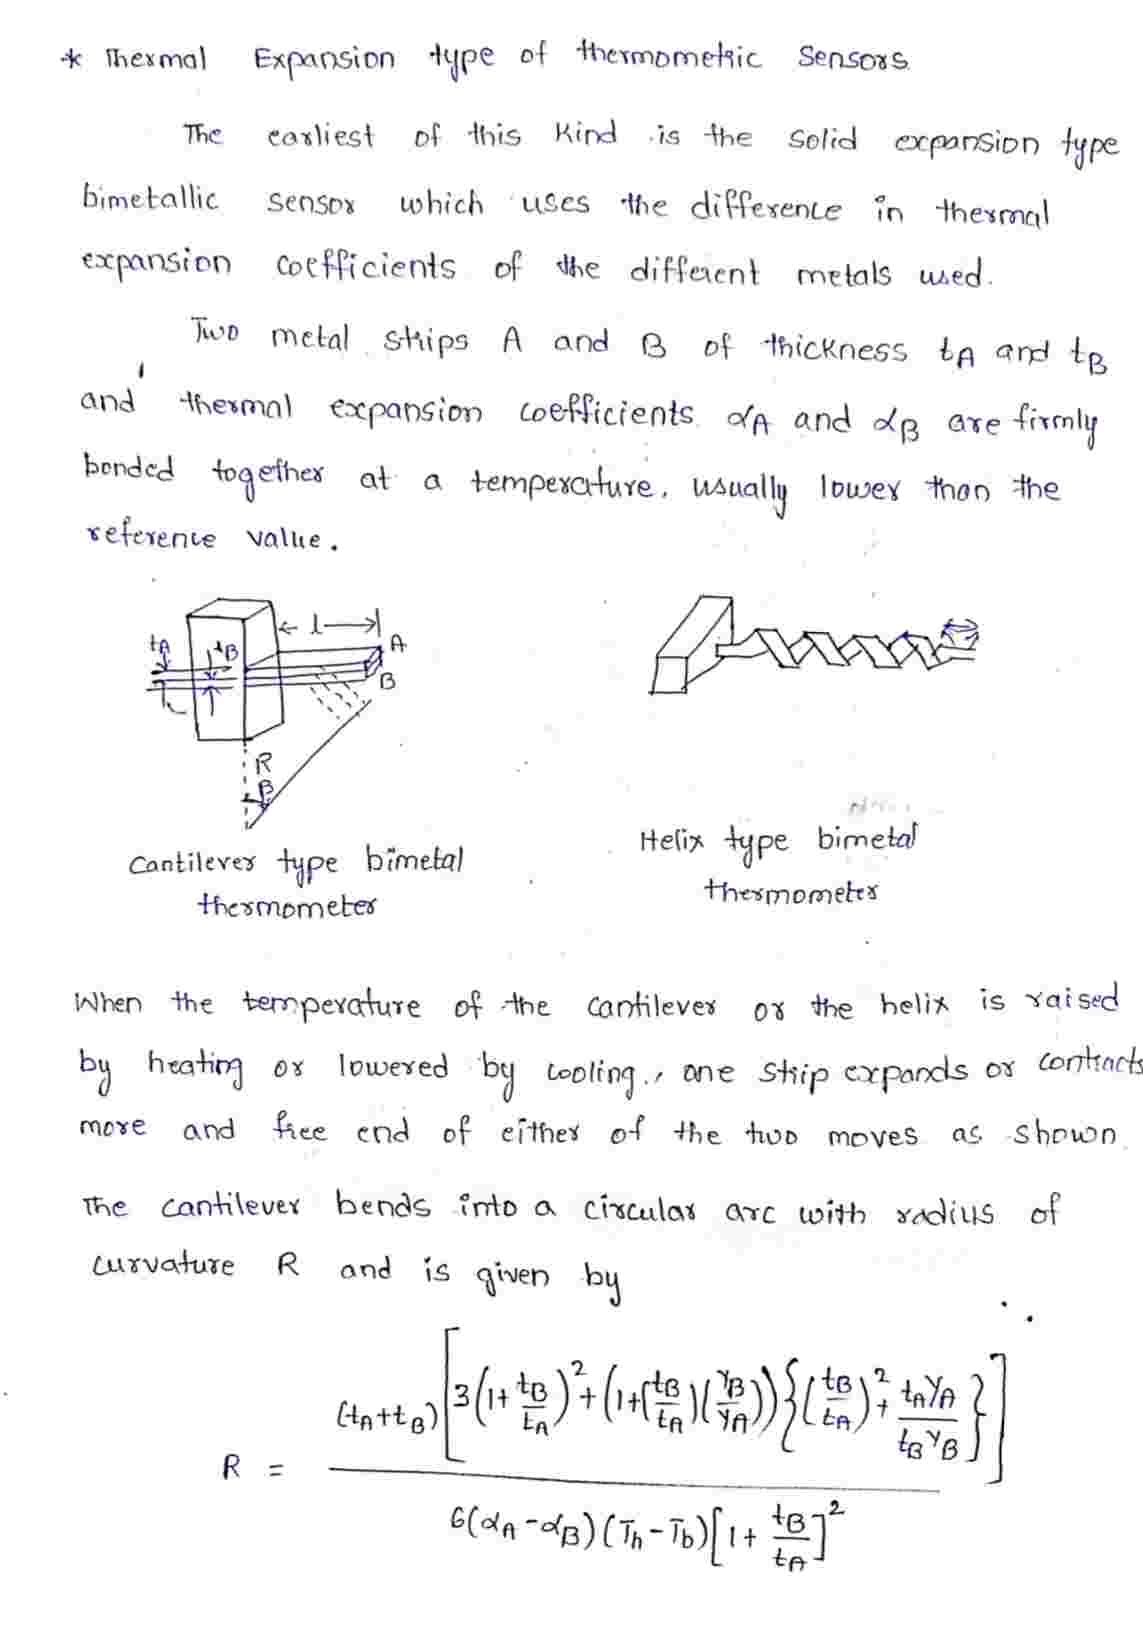 * Thermal Expansion type of thermometric Sensors.
The earliest of this kind is the solid expansion type
bimetallic sensor which uses the difference in thermal
expansion coefficients of the different metals used.
Two metal strips A and B of thickness tA and tB
and thermal expansion coefficients αA and αB are firmly
bonded together at a temperature, usually lower than the
reference value.
← l → A
tA tB
B
R
β
Cantilever type bimetal
thermometer
Helix type bimetal
thermometer
When the temperature of the cantilever or the helix is raised
by heating or lowered by cooling, one strip expands or contracts
more and free end of either of the two moves as shown
The cantilever bends into a circular arc with radius of
curvature R and is given by
R = (tA+tB)[3(1+tB/tA)²+(1+(tB/tA)(YB/YA)){(tB/tA)²+tAYA/tBYB}]
6(αA-αB)(Th-Tb)[1+tB/tA]²